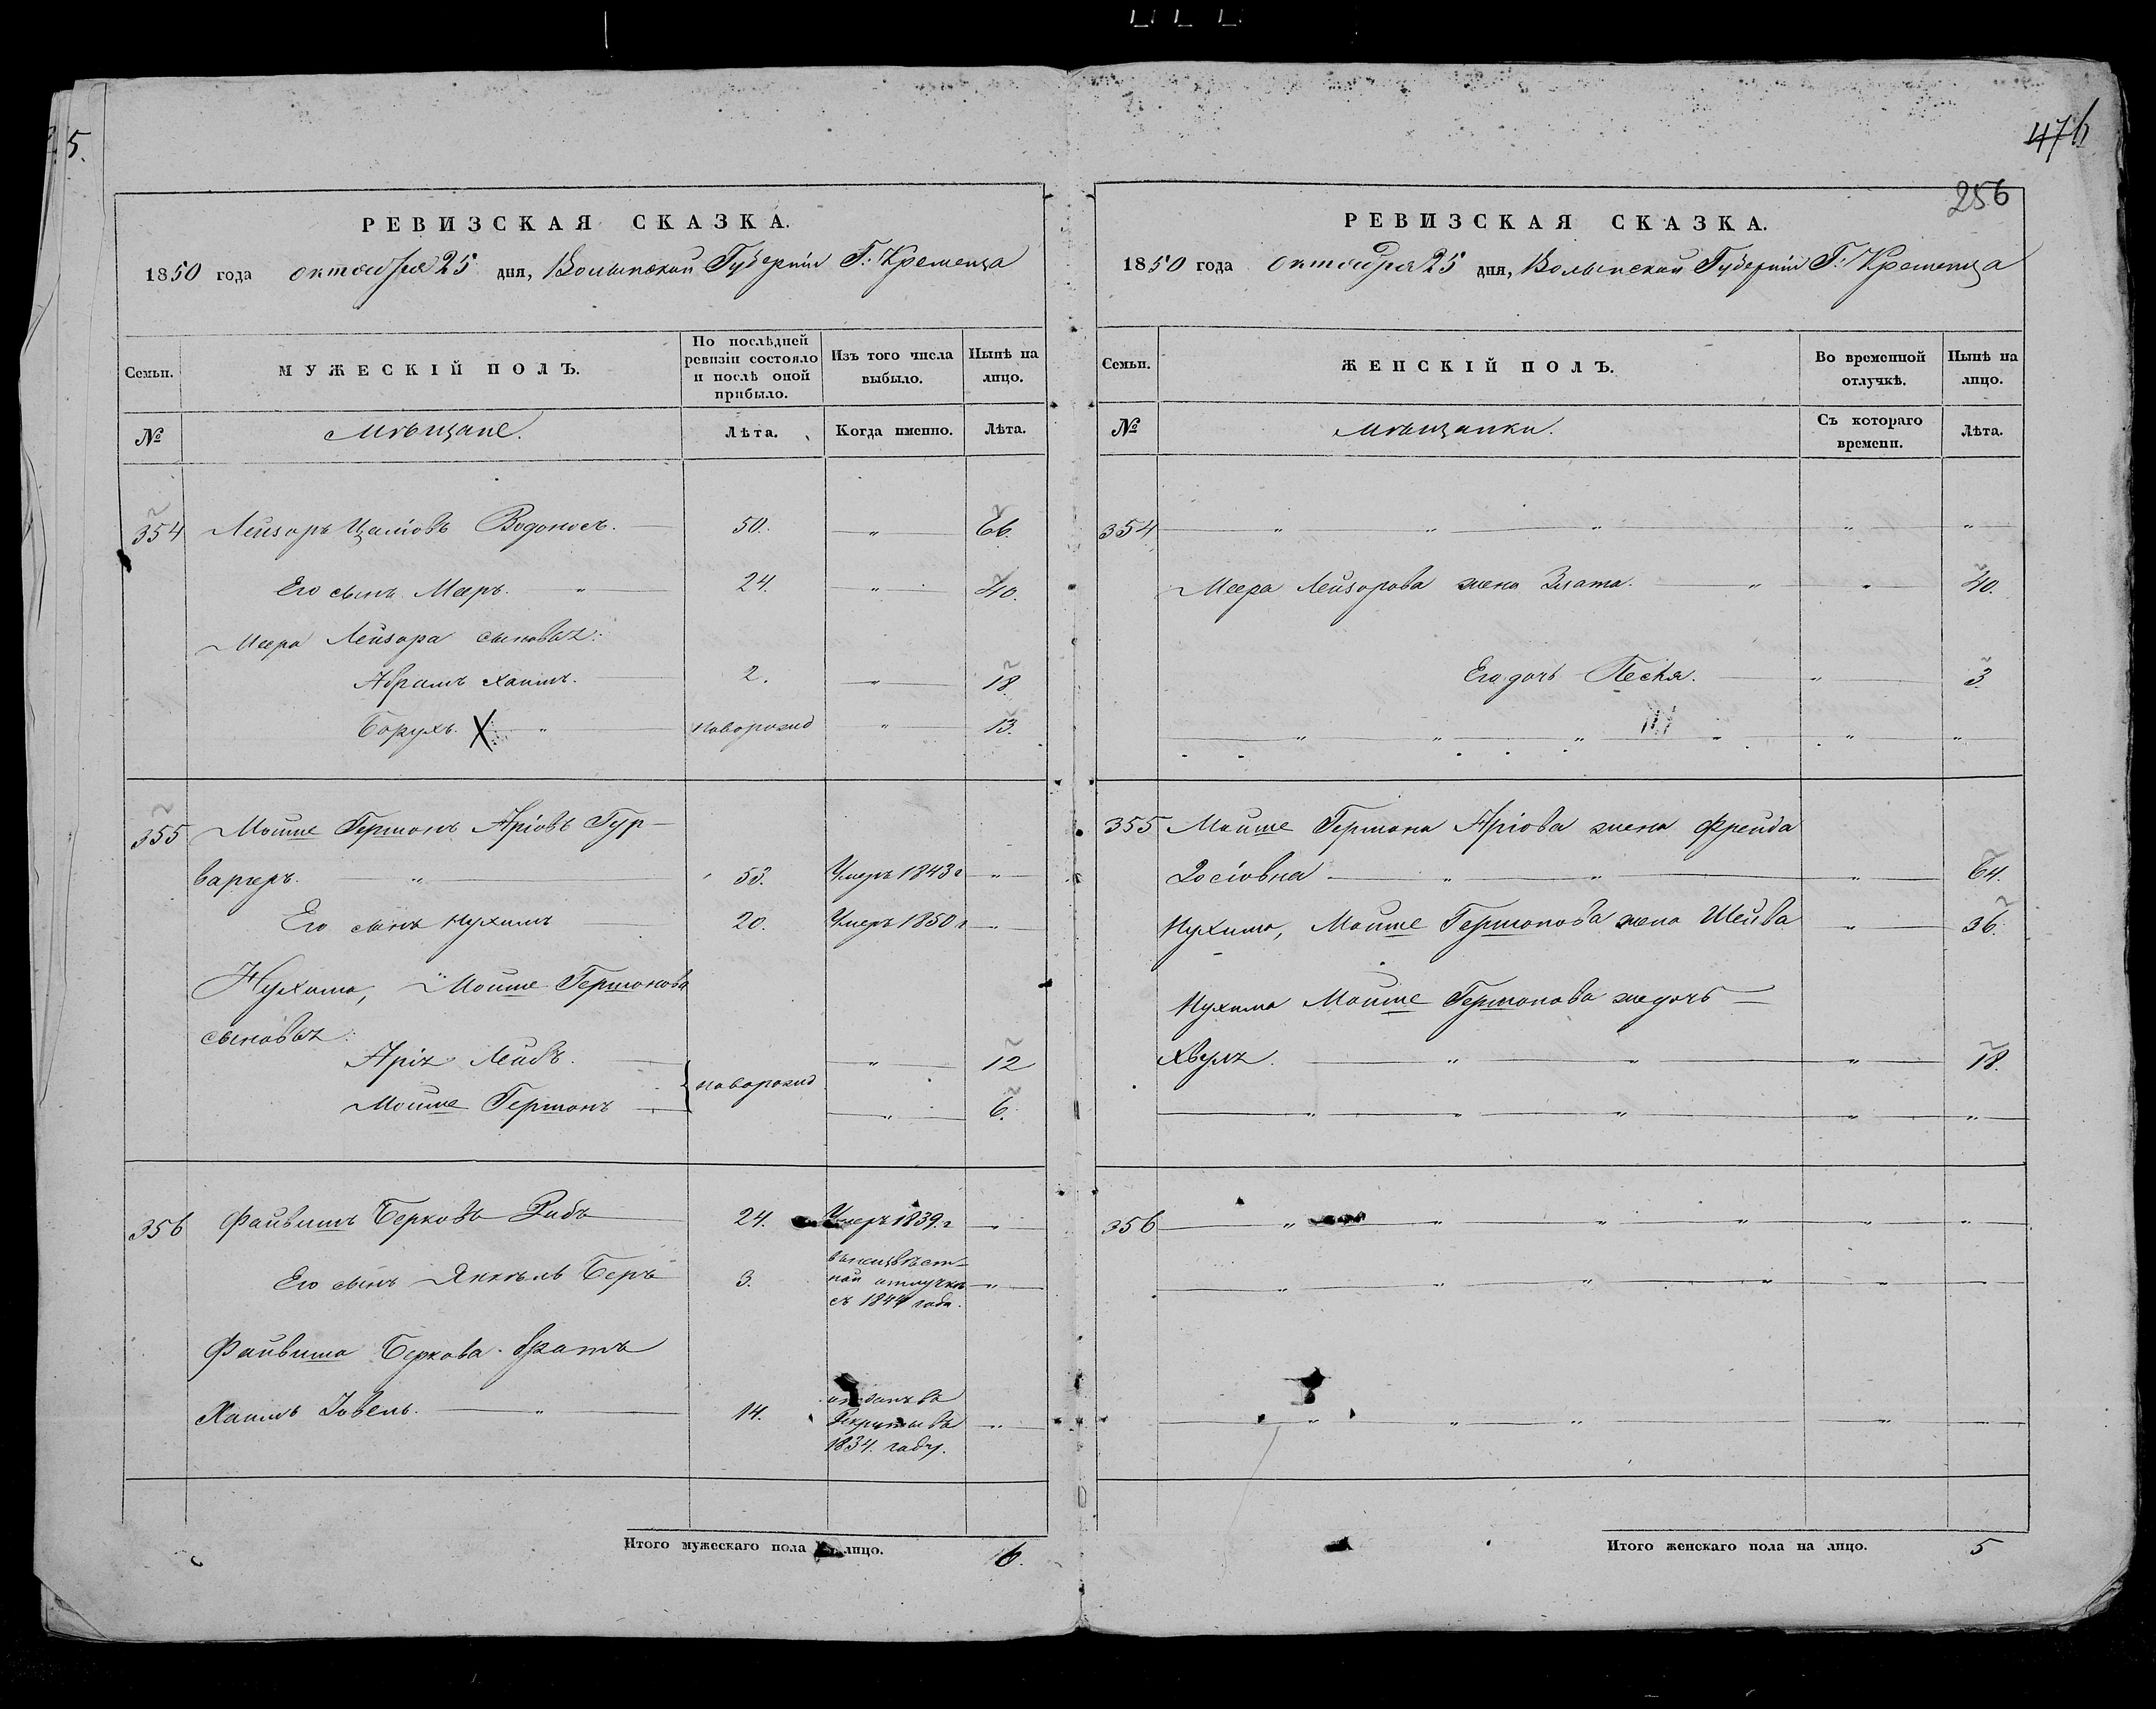 5.
РЕВИЗСКАЯ СКАЗКА.
1850 года октября 25 дня, Волынской Губернiи Г. Кременца
Семьи.
МУЖЕСКІЙ ПОЛЪ.
По послѣдней ревизіи состояло и послѣ оной прибыло.
Изъ того числа выбыло.
Нынѣ на лицо.
№
Мѣщане.
Лѣта.
Когда именно.
Лѣта.
354 Лейзоръ Водоносъ. 50. " 66.
Его сынъ Мееръ. " 24. " 40.
Меера Лейзора сыновья:
Абрамъ Хаимъ. 2. " 18
Борухъ. X " новорожд " 13.
355 Мошше Гершонъ Аріовъ Гур-
варгеръ. " 53. Умеръ 1843 г "
Его сынъ Нухимъ 20. Умеръ 1850 г "
Нухима, Мошше Гершонова
сыновья:
Аріа Лейбъ. " 12
новорожд
Мошше Гершонъ " 6.
356 Файвишъ Берковъ 24. Умеръ 1839. г "
Его сынъ Янкель Беръ 3. въ неизвѣст-
ной отлучкѣ "
съ 1844 года.
Файвиша Беркова братъ
Хаимъ Іовель. " 14. отданъ въ
Рекруты въ "
1834. году.
Итого мужескаго пола на лицо. 6.
476
256
РЕВИЗСКАЯ СКАЗКА.
1850 года октября 25 дня, Волынской Губернiи Г. Кременца
Семьи.
ЖЕНСКІЙ ПОЛЪ.
Во временной отлучкѣ.
Нынѣ на лицо.
№
Мѣщанки.
Съ котораго времени.
Лѣта.
354 " " " " "
Меера Лейзорова жена Злата. " " 40.
Его дочь Песя. " 3.
" " " " " "
355 Мошше Гершона Аріова жена Фрейда
Іосіовна " " " 64.
Нухима, Мошше Гершонова жена Шейва " 36.
Нухима Мошше Гершонова же дочь
Хвуля. " " " 18.
" " " " "
356 " " " " " "
" " " " "
" " " " "
Итого женскаго пола на лицо. 5